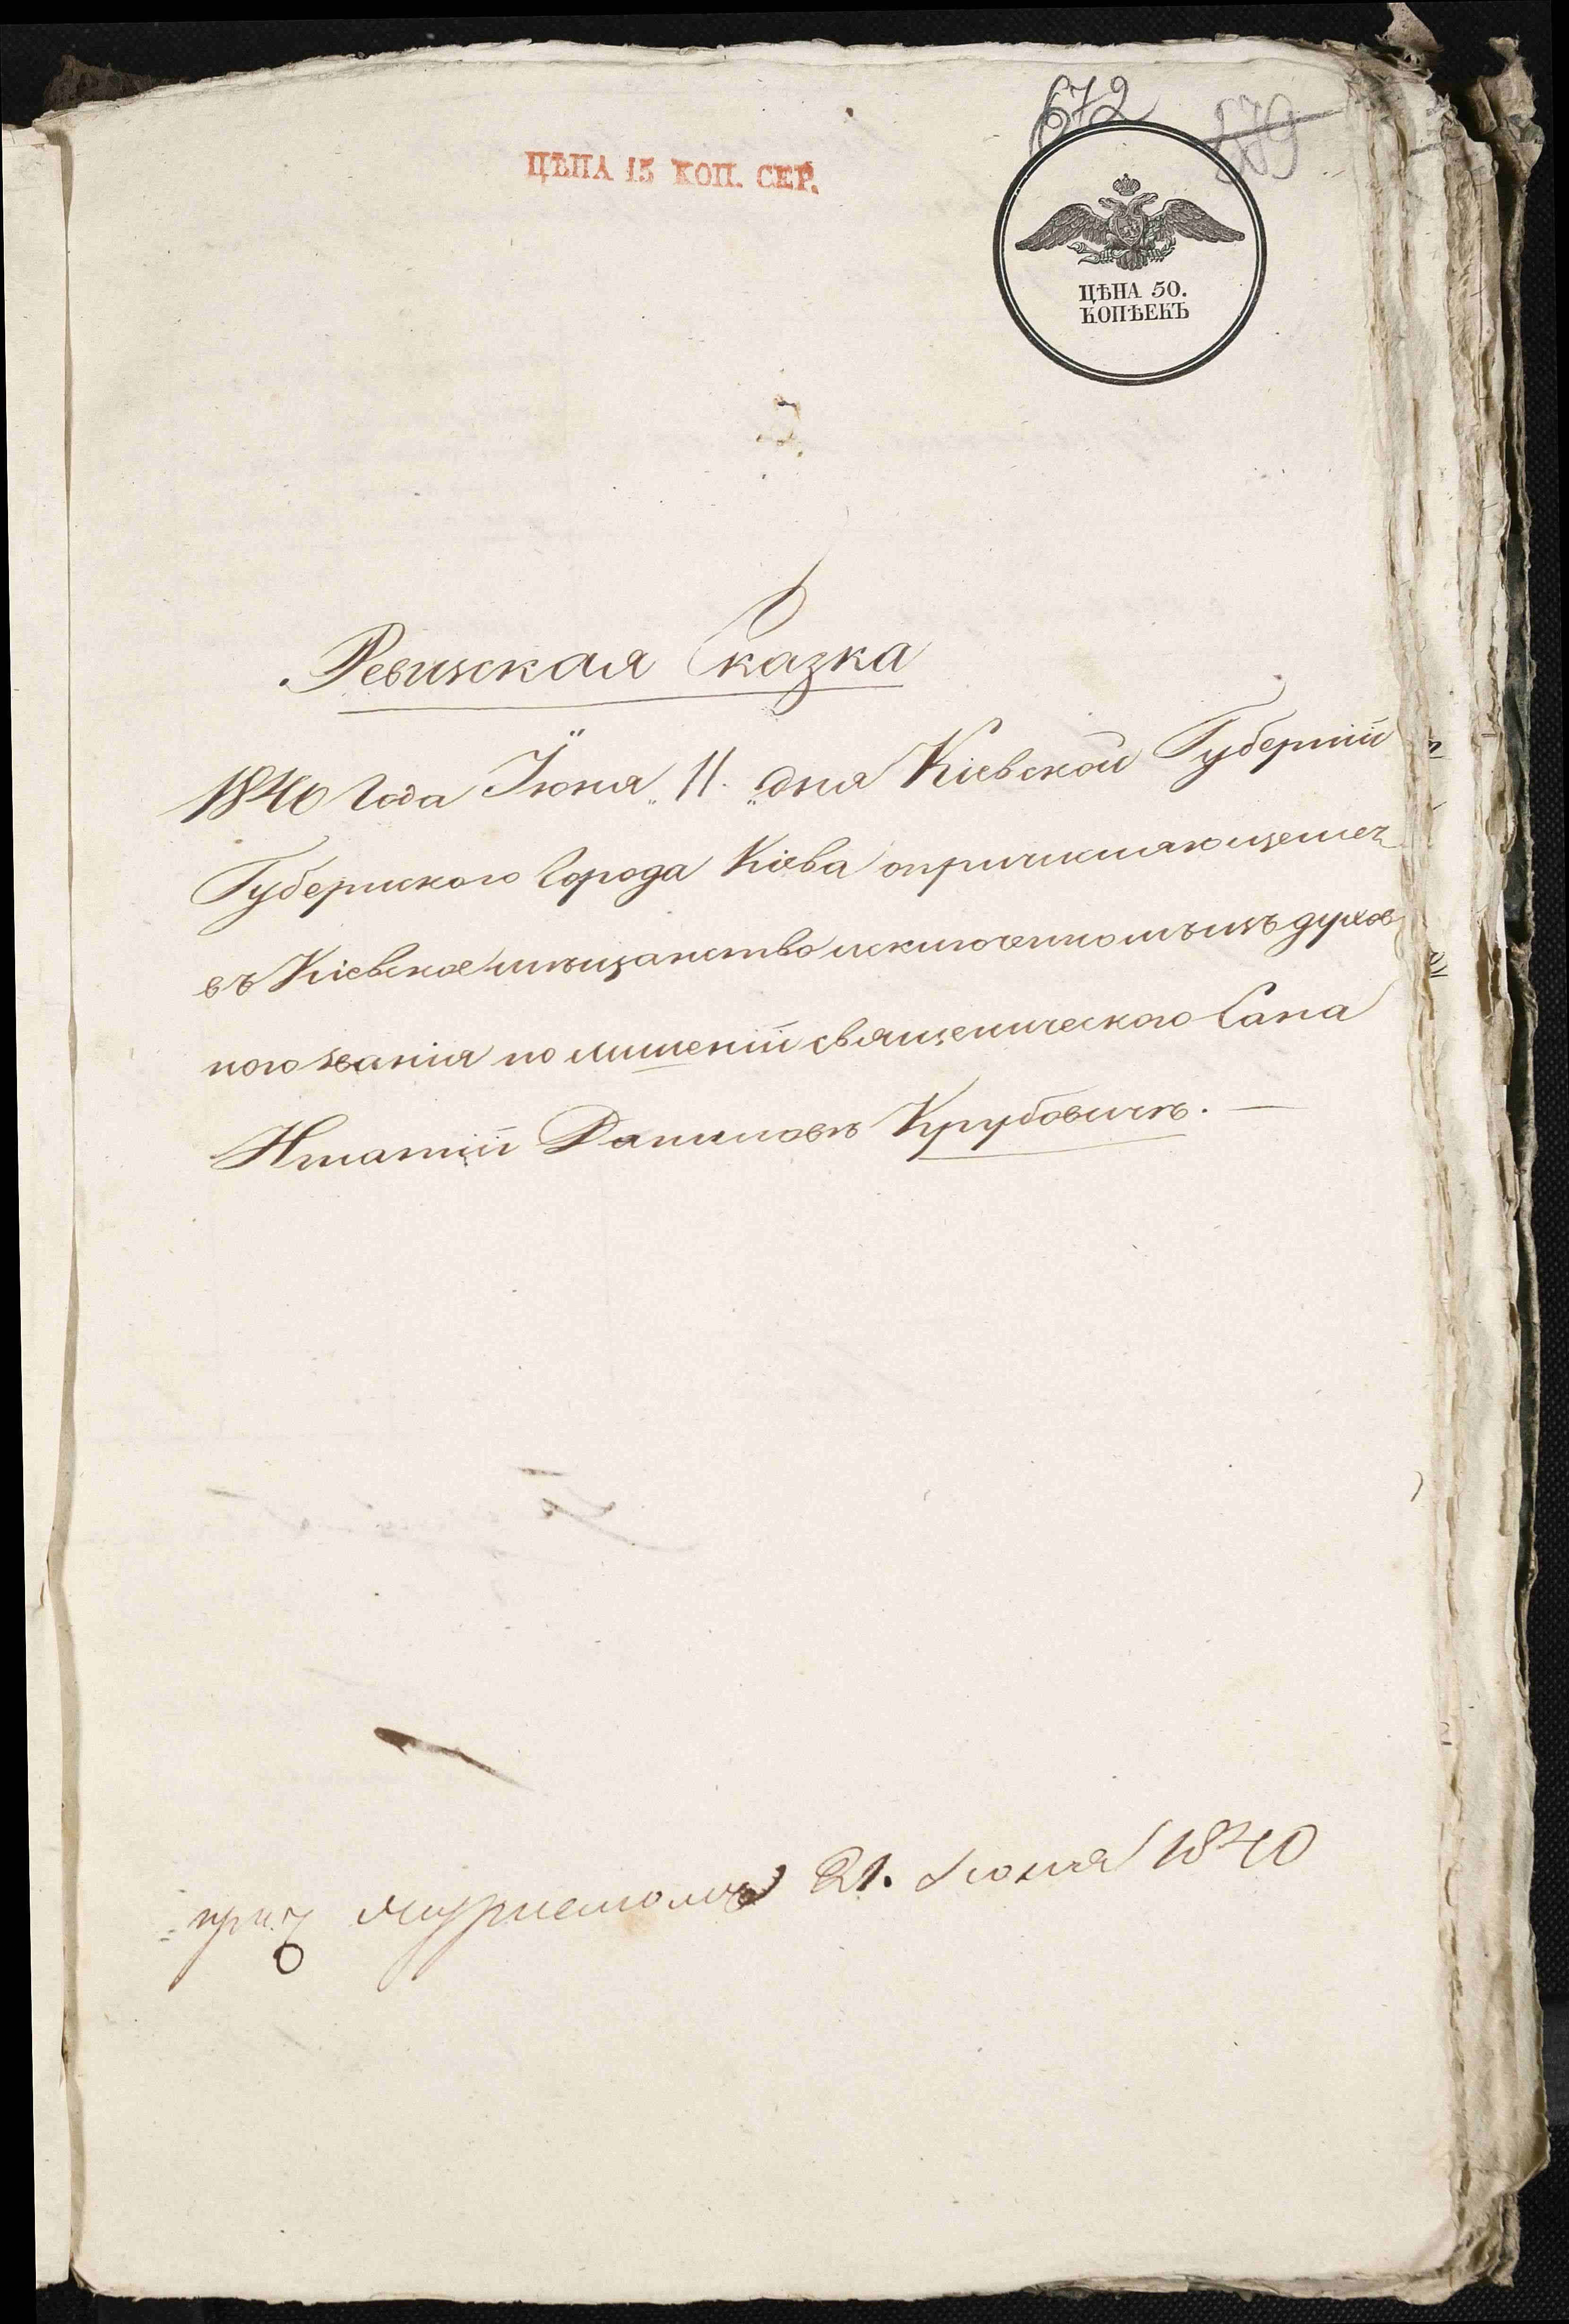 672
579
ЦѢНА 15 КОП. СЕР.
ЦѢНА 50.
КОПѢЕКЪ
Ревизская Сказка
1840 Года Іюня „11„ дня Кіевской Губерніи
Губернского Города Кіева о причисляющемся
въ Кіевское мѣщанство исключенномъ изъ духов
ного званія по лишеніи священического Сана
Игнатіи Даниловѣ Крубовичѣ. —
21. Іюня 1840